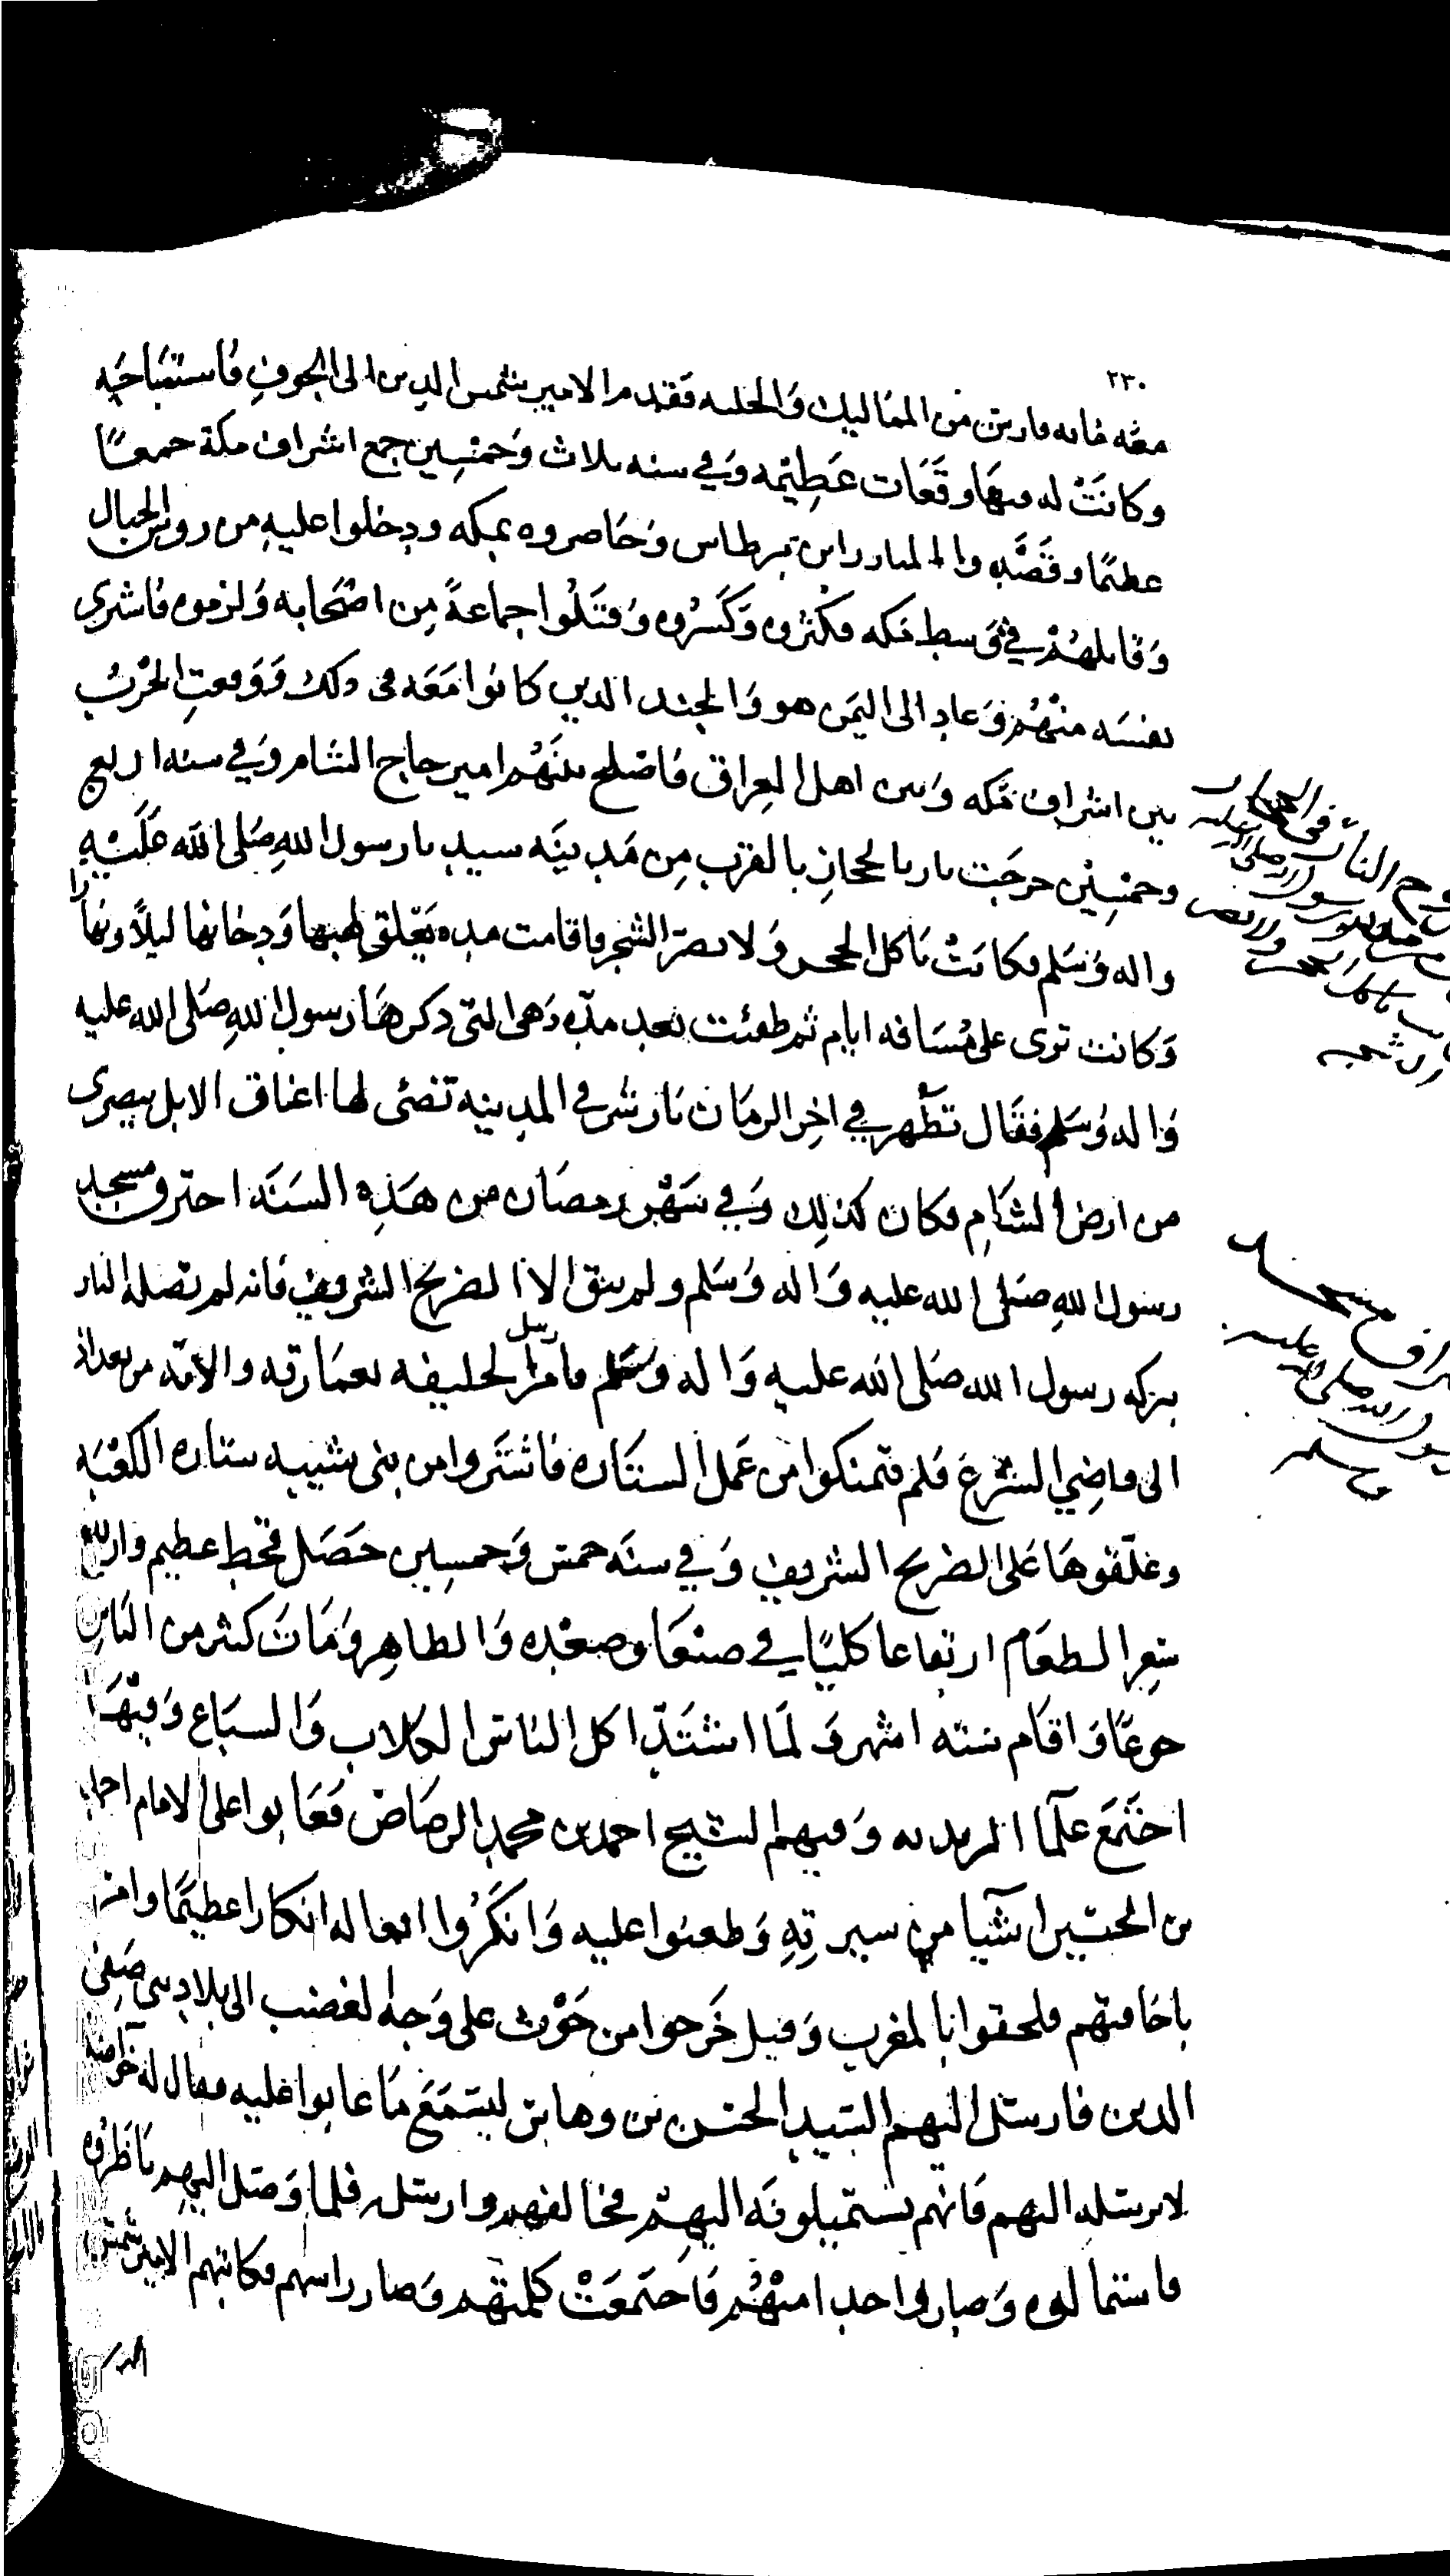 ٢٣٠
معه مايه فارس من المماليك والحلقه فقدم الامير شمس الدين الى الجوف فاستباحه
وكانت له فيها وقعات عظيمه وفي سنه ثلاث وخمسين جمع اشراف مكة جمعا
عظيما وقصدوا المبارز ابن برطاس وحاصروه بمكه ودخلوا عليه من روس الجبال
وقاتلهم في وسط مكه فكثروه وكسروه وقتلوا جماعة من اصحابه ولزموه فاشترى
نفسه منهم وعاد الى اليمن هو والجند الذين كانوا معه فى ذلك ووقعت الحرب
بين اشراف مكه وبين اهل العراق فاصلح بينهم امير حاج الشام وفي سنه اربع
وخمسين خرجت نار بالحجاز بالقرب من مدينه سيدنا رسول الله صلى الله عليه
واله وسلم فكانت تاكل الحجر ولا تضر الشجر فاقامت مده يتعلق لهبها ودخانها ليلا ونهارا
وكانت ترى على مسافه ايام ثم طفئت بعد مدّه وهى التى ذكرها رسول الله صلى الله عليه
واله وسلم فقال تظهر في اخر الزمان نار شرقي المدينه تضئى لها اعناق الابل ببصرى
من ارض الشام فكان كذلك وفي شهر رمضان من هذه السنه احترق مسجد
رسول الله صلى الله عليه واله وسلم ولم يبق الا الضريح الشريف فانه لم تصله النار
ببركه رسول الله صلى الله عليه واله وسلم فامر الخليفه بعمارته والاته من بغداد
الى قاضي الشرع فلم يتمكنوا من عمل الستاره فاشتروا من بنى شيبه ستاره الكعبه
وعلقوها على الضريح الشريف وفي سنه خمس وخمسين حصل قحط عظيم وارتفع
سعر الطعام ارتفاعا كليا في صنعا وصعده والظاهر ومات كثير من الناس
جوعا واقام سته اشهر ولما اشتدّ اكل الناس الكلاب والسباع وفيها
اجتمع علما الزيديه وفيهم الشيخ احمد بن محمد الرصاص فعابوا على الامام احمد
بن الحسين اشيا من سيرته وطعنوا عليه وانكروا افعاله انكارا عظيما وامر
باخافتهم فلحقوا بالمغرب وقيل خرجوا من حوث على وجه الغضب الى بلاد بنى صفى
الدين فارسل اليهم السيد الحسن بن وهاس ليسمع ما عابوا عليه فقال له خواصه
لا ترسله اليهم فانهم يستميلونه اليهم فخالفهم وارسل فلما وصل اليهم ناظروه
فاستمالوه وصار واحدا منهم فاجتمعت كلمتهم وصار راسهم فكاتبهم الامير شمس